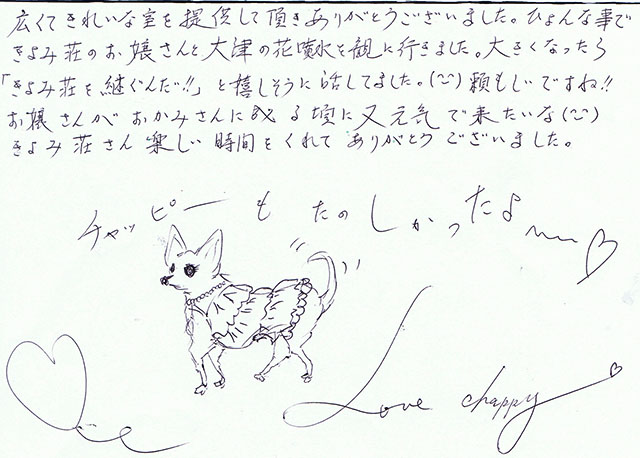 広くてきれいな室を提供して頂きありがとうございました。ひょんな事で
きよみ荘のお嬢さんと大津の花噴水を観に行きました。大きくなったら
「きよみ荘を継ぐんだ!!」と嬉しそうに話してました。(^-^)頼もしいですね!!
お嬢さんがおかみさんに成る頃に又元気で来たいな(^-^)
きよみ荘さん楽しい時間をくれてありがとうございました。
チャッピーもたのしかったよ〜〜♡
Love chappy♡